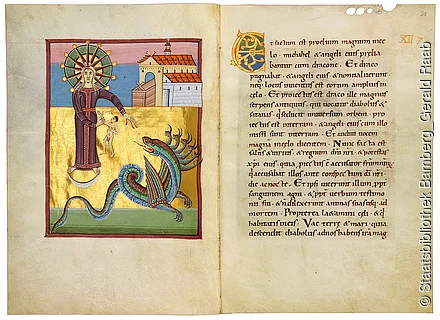 XII
Et factum est proelium magnum ince
lo. michahel & angeli eius prelia
bantur cum dracone. Et draco
pugnabat. & angeli eius & non ualuerunt. ne
que locus inuentus est eorum amplius in
celo. Et proiectus est draco ille magnus
serpens antiquus. qui uocatur diabolus &
satanas. qui seducit uniuersum orbem.
tus est interram. & angeli eius cum illo
missi sunt interram. Et audiui uocem
magnam incelo dicentem. Nunc facta est
salus & uirtus. & regnum dni nri. & potestas
xpi eius. quia proiectus est accusator
qui accusabat illos ante conspectum di nri
die ac nocte. Et ipsi uicerunt illum. ppt
sanguinem agni. & ppt uerbum testimo
nii sui. & dilexerunt animas suas usq; ad
mortem. Propterea laetamini celi. & q
habitatis ineis. Vae terre & mari. quia
descendit diabolus aduos habens ira mag
© Staatsbibliothek Bamberg, Gerald Raab